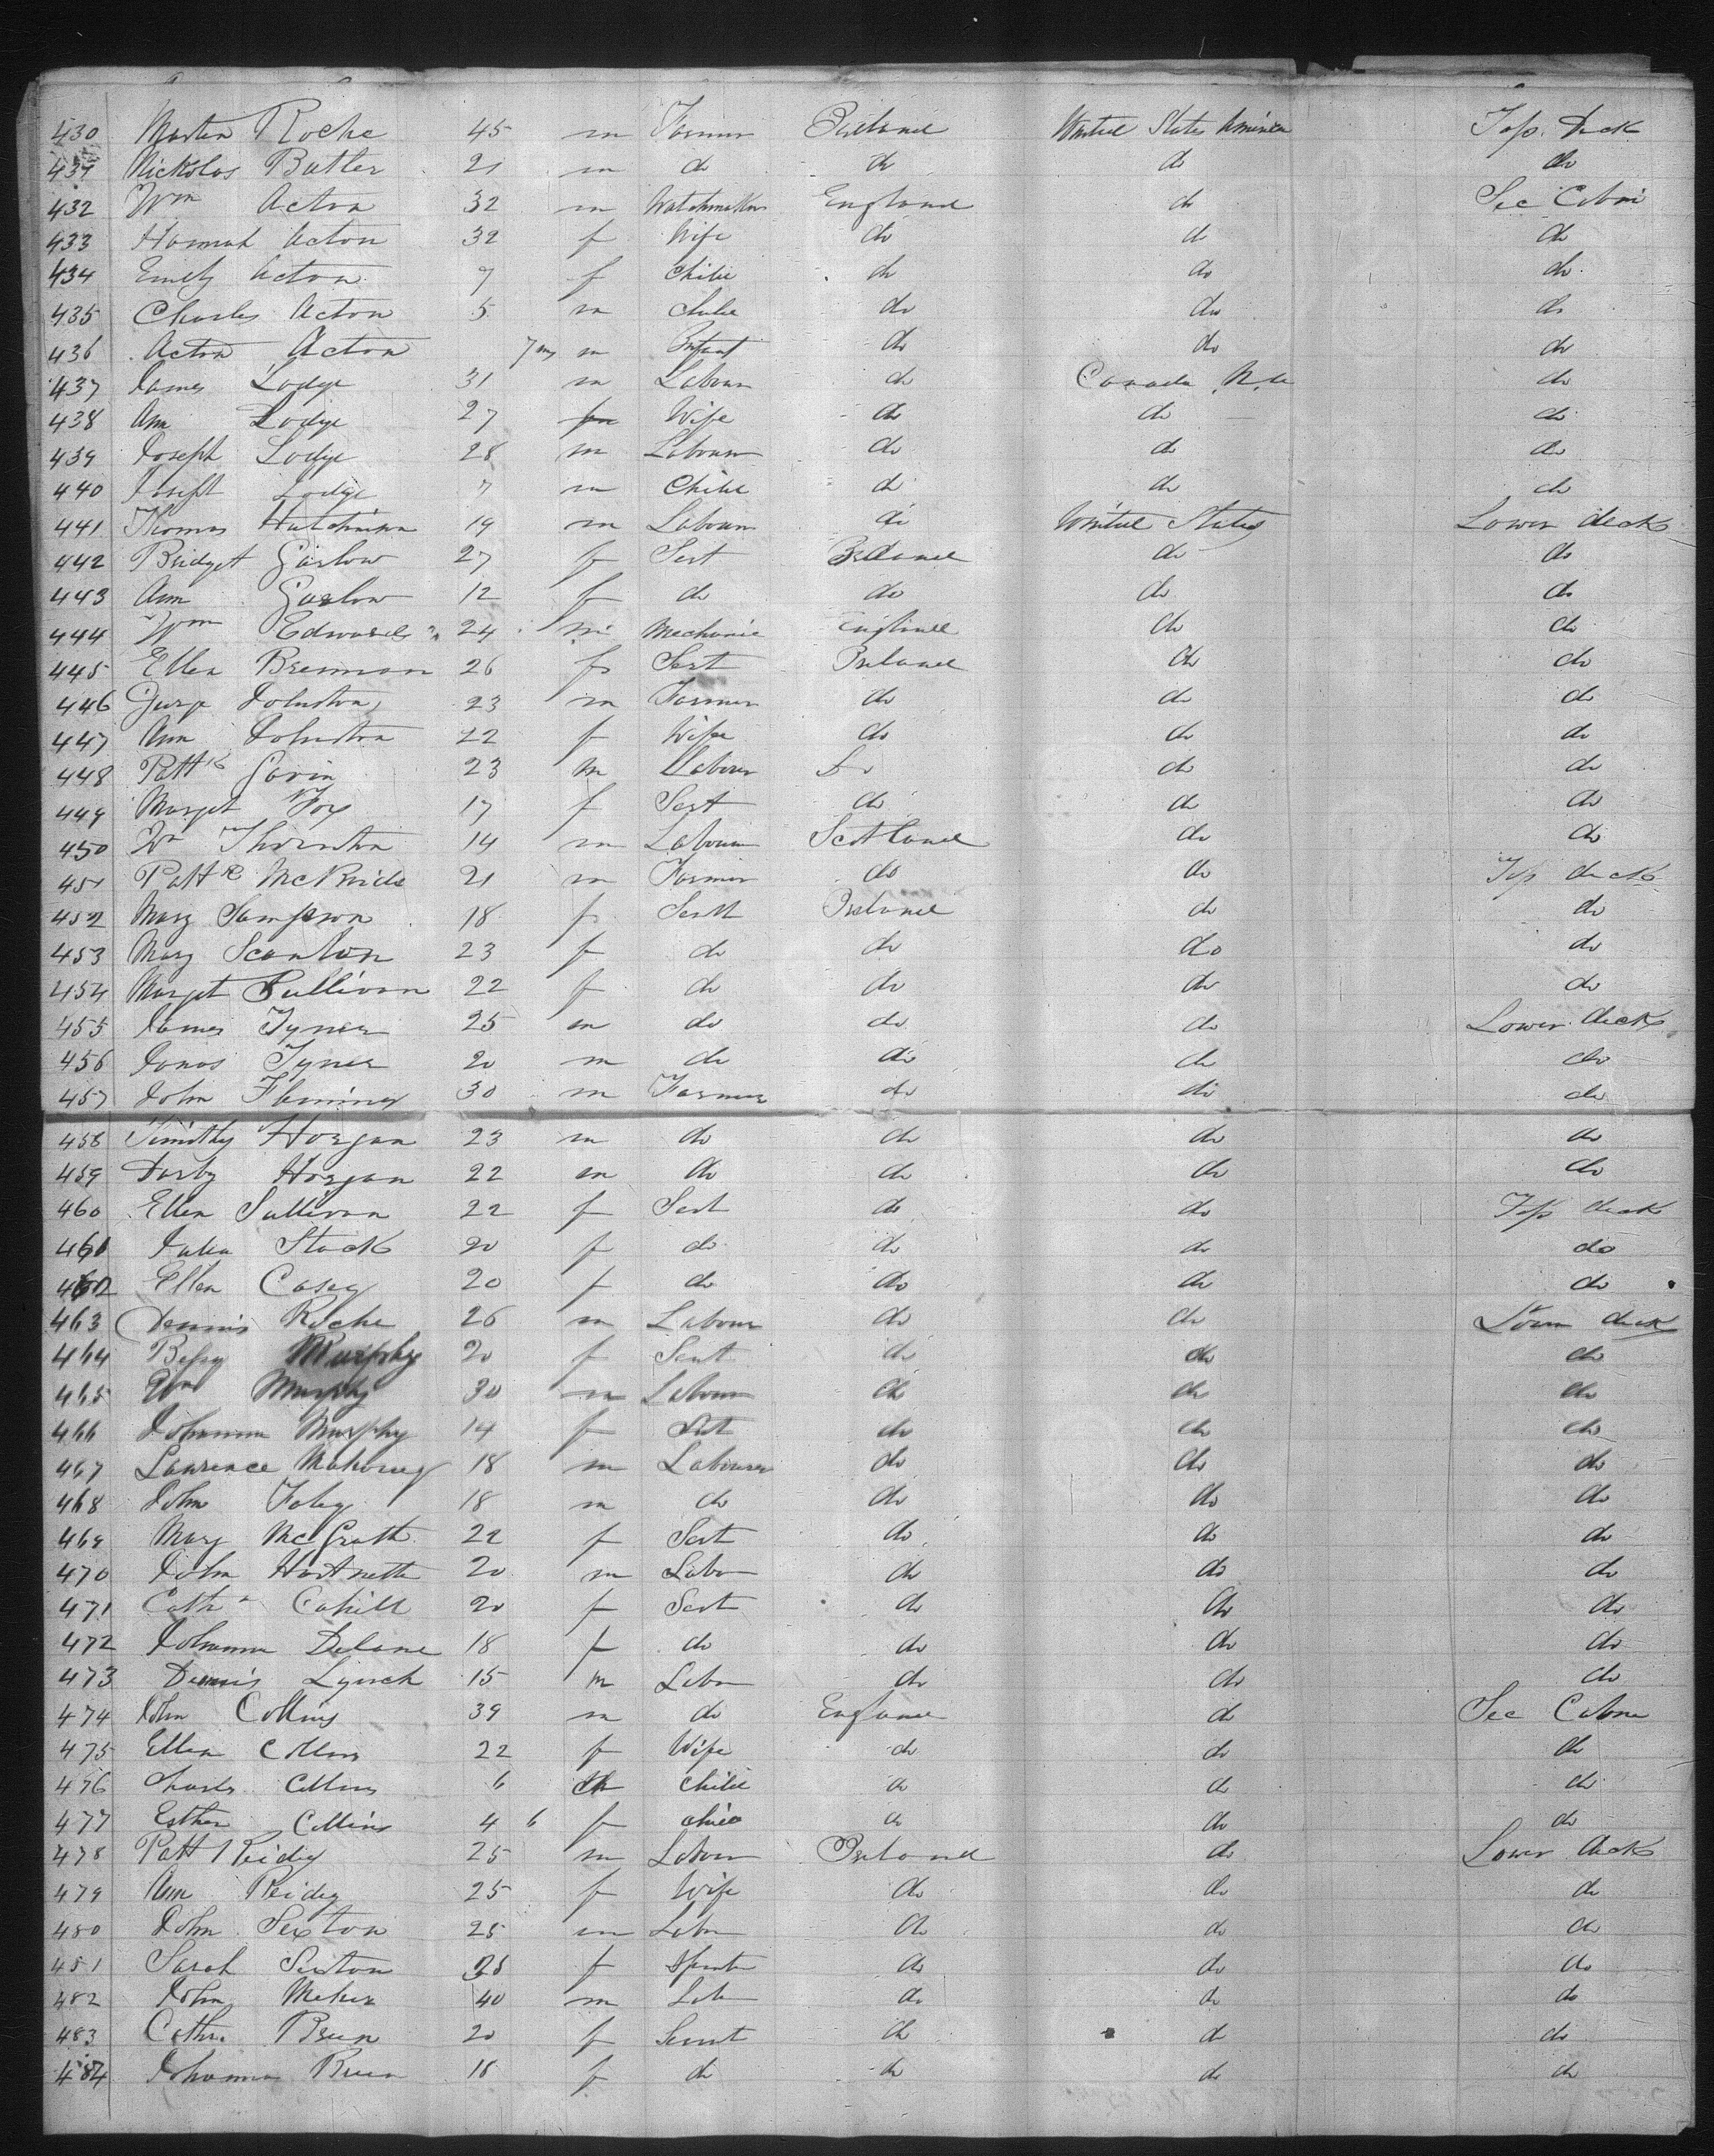 430 Martin Roche 45 m Farmer Ireland United States America Top Deck
431 Nickolas Butler 21 m do do do do
432 Wm Acton 32 m Watchmaker England do Sec Cabin
433 Hannah Acton 32 f Wife do do do
434 Emily Acton 7 f Child do do do
435 Charles Acton 5 m Child do do do
436 Acton Acton 7 ms m Infant do do do
437 James Lodge 31 m Labour do Canada do
438 Ann Lodge 27 Wife do do do
439 Joseph Lodge 28 m Labourer do do do
440 Joseph Lodge 7 m Child do do do
441 Thomas Hutchinson 19 m Labourer do United States Lower deck
442 Bridget Garlow 27 f Sert Ireland do do
443 Ann Garlow 12 f do do do do
444 Wm Edwards 24 m Mechanic England do do
445 Ellen Brennan 26 f Sert Ireland do do
446 George Johnston 23 m Farmer do do do
447 Ann Johnston 22 f Wife do do do
448 Pattk Gavin 23 m Labour Do do do
449 Marget Fox 17 f Sert do do do
450 Wm Thornton 14 m Labourer Scotland do do
451 Pattk McBride 21 m Farmer do do Top deck
452 Mary Sampson 18 f Sertt Ireland do do
453 Mary Scanlon 23 f do do do do
454 Marget Sullivan 22 f do do do do
455 James Tyner 25 m do do do Lower deck
456 Jonas Tyner 20 m do do do do
457 John Fleming 30 m Farmer do do do
458 Timothy Horgan 23 m do do do do
459 Darby Horgan 22 m do do do do
460 Ellen Sullivan 22 f Sert do do Top deck
461 Julia Stack 20 f do do do do
462 Ellen Casey 20 f do do do do
463 Dennis Roche 26 m Labour do do Lower deck
464 Bessy Murphy 20 f Sert do do do
465 Wm Murphy 30 m Labour do do do
466 Johanna Murphy 14 f Sert do do do
467 Lawrence Mahoney 18 m Labourer do do do
468 John Foley 18 m do do do do
469 Mary McGrath 22 f Sert do do do
470 John Hartnett 20 m Labo do do do
471 Cathn Cahill 20 f Sert do do do
472 Johanna Delane 18 f do do do do
473 Dennis Lynch 15 m Labo do do do
474 John Collins 39 m do England do Sec Cabin
475 Ellen Collins 22 f Wife do do do
476 Charles Collins 6 child do do do
477 Esther Collins 4 6 f child do do do
478 Patt Reidy 25 m Labour Ireland do Lower deck
479 Ann Reidy 25 f Wife do do do
480 John Sexton 25 m Labr do do do
481 Sarah Sexton 28 f do do do
482 John Meher 40 m Lab do do do
483 Cathn 20 f Servt do do do
484 Johanna 18 f do do do do